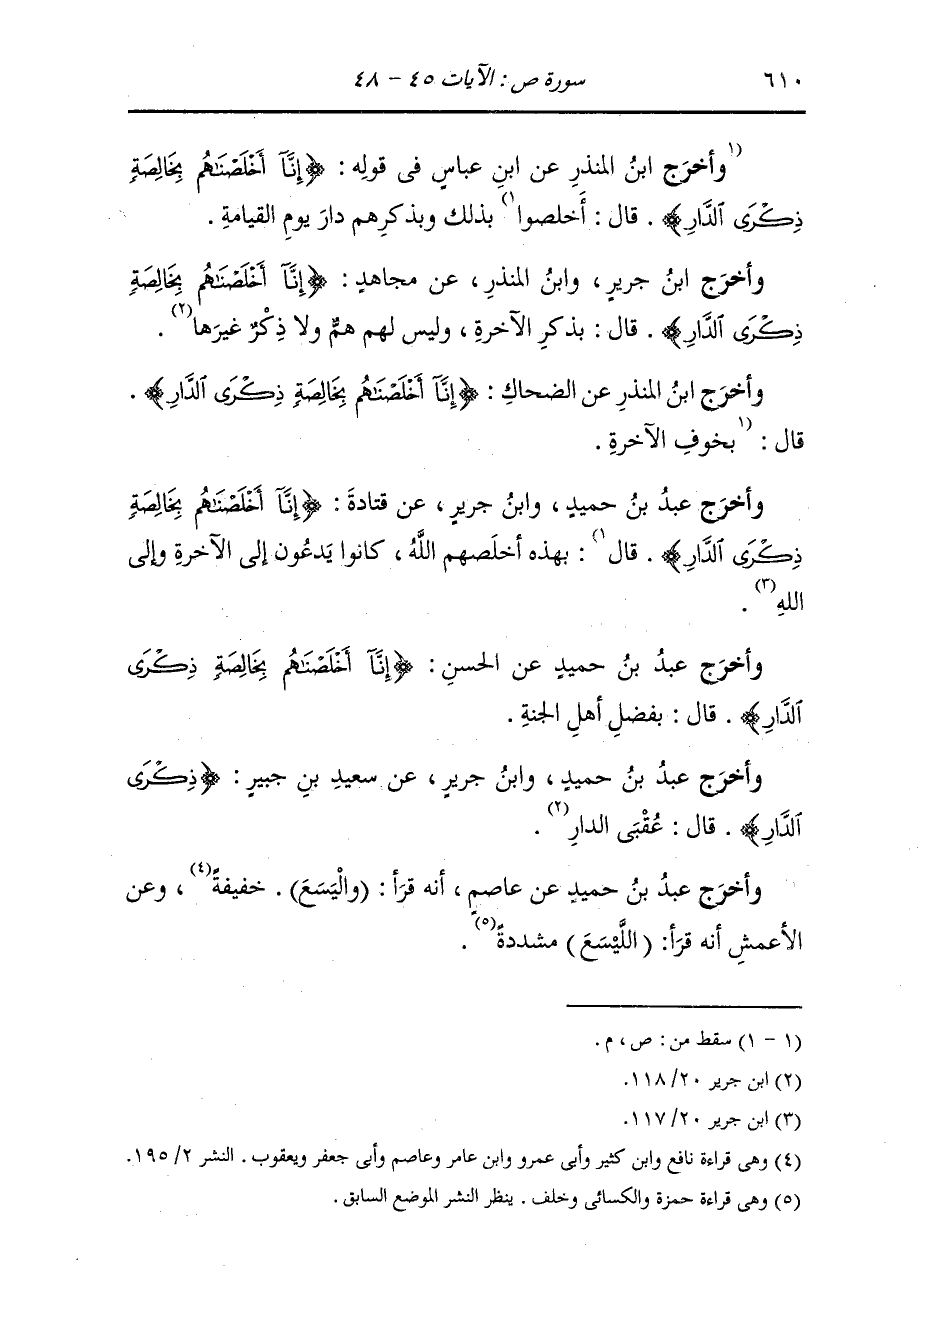 ٦١٠ سورة ص : الآيات ٤٥ - ٤٨
(١ وأخرَج ابنُ المنذرِ عن ابنِ عباسٍ فى قولِه : ﴿إِنَّآ أَخْلَصْنَٰهُم بِخَالِصَةٍ
ذِكْرَى ٱلدَّارِ﴾ . قال : أَخلصوا ١) بذلك وبذكرِهم دارَ يومِ القيامةِ .
وأخرَج ابنُ جريرٍ ، وابنُ المنذرِ ، عن مجاهدٍ : ﴿إِنَّآ أَخْلَصْنَٰهُم بِخَالِصَةٍ
ذِكْرَى ٱلدَّارِ﴾ . قال : بذكرِ الآخرةِ ، وليس لهم همٌّ ولا ذِكْرٌ غيرَها (٢) .
وأخرَج ابنُ المنذرِ عن الضحاكِ : ﴿إِنَّآ أَخْلَصْنَٰهُم بِخَالِصَةٍ ذِكْرَى ٱلدَّارِ﴾ .
قال : (١ بخوفِ الآخرةِ .
وأخرَج عبدُ بنُ حميدٍ ، وابنُ جريرٍ ، عن قتادةَ : ﴿إِنَّآ أَخْلَصْنَٰهُم بِخَالِصَةٍ
ذِكْرَى ٱلدَّارِ﴾ . قال ١) : بهذه أخلَصهم اللَّهُ ، كانوا يَدعُون إلى الآخرةِ وإلى
اللهِ (٣) .
وأخرَج عبدُ بنُ حميدٍ عن الحسنِ : ﴿إِنَّآ أَخْلَصْنَٰهُم بِخَالِصَةٍ ذِكْرَى
ٱلدَّارِ﴾ . قال : بفضلِ أهلِ الجنةِ .
وأخرَج عبدُ بنُ حميدٍ ، وابنُ جريرٍ ، عن سعيدِ بنِ جبيرٍ : ﴿ذِكْرَى
ٱلدَّارِ﴾ . قال : عُقْبَى الدارِ (٢) .
وأخرَج عبدُ بنُ حميدٍ عن عاصمٍ ، أنه قرَأ : (والْيَسَعَ) . خفيفةً (٤) ، وعن
الأعمشِ أنه قرَأ: (اللَّيْسَعَ) مشددةً (٥) .
(١ - ١) سقط من : ص ، م .
(٢) ابن جرير ٢٠/ ١١٨.
(٣) ابن جرير ٢٠/ ١١٧.
(٤) وهى قراءة نافع وابن كثير وأبى عمرو وابن عامر وعاصم وأبى جعفر ويعقوب . النشر ٢/ ١٩٥.
(٥) وهى قراءة حمزة والكسائى وخلف . ينظر النشر الموضع السابق .